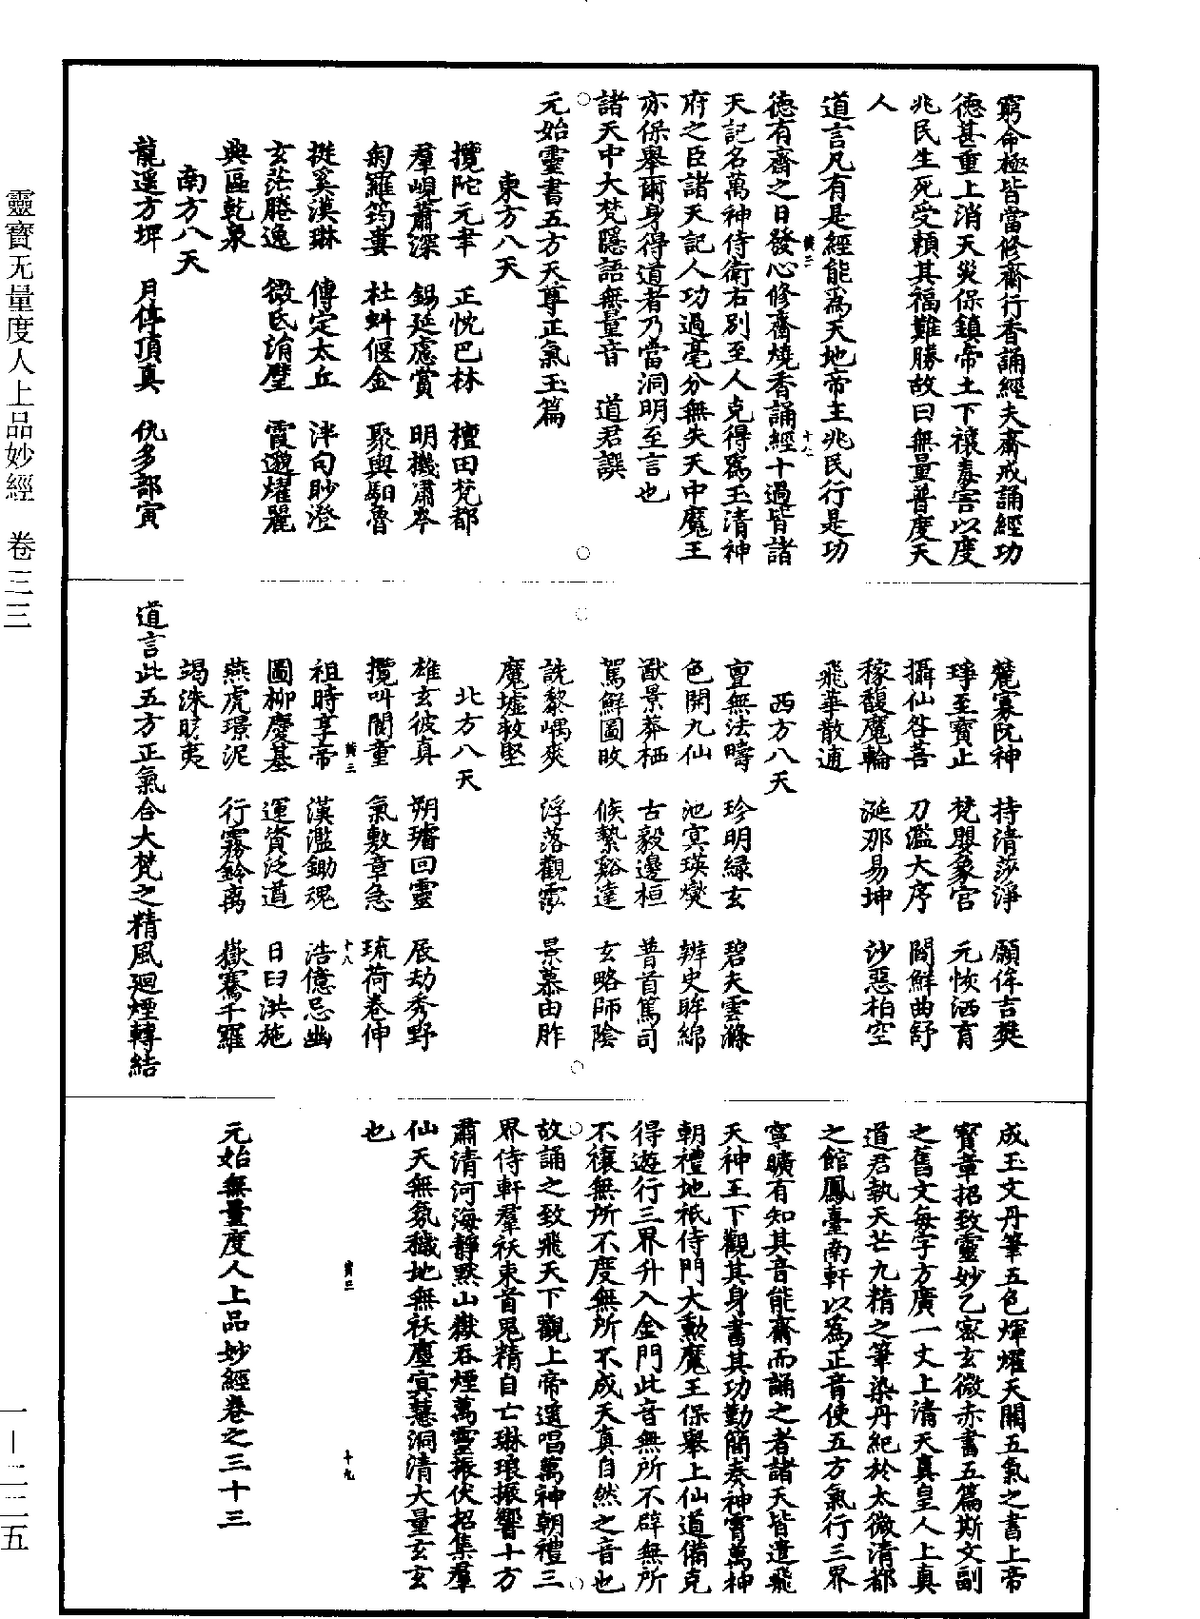 窮命極皆當修齋行香誦經夫齋戒誦經功
德甚重上消天災保鎮帝土下禳毒害以度
兆民生死受賴其福難勝故曰無量普度天
人
道言凡有是經能為天地帝主兆民行是功
德有齋之日發心修齋燒香誦經十過皆諸
天記名萬神侍衛右別至人克得為玉清神
府之臣諸天記人功過毫分無失天中魔王
亦保舉爾身得道者乃當洞明至言也
諸天中大梵隱語無量音 道君譔
元始靈書五方天尊正氣玉篇
東方八天
攬陀元聿 正忱巴林 檀田梵都
羣峴蕭深 錫延慮賞 明機肅岑
匊羅筠婁 杜蚪偃金 聚輿馹魯
挻奚漢琳 傳定太丘 泮句眇澄
玄茫騰逸 微氏淯壂 霞邈燿麗
典區乾泉
南方八天
龍遥方墀 月停頂真 仇多部寅
麓寡阮神 持清莎淨 願侔吉樊
琤至寶止 梵盟象宫 元恢洒育
攝仙咎菩 刀濫大序 閻鮮曲舒
稼馥魔輪 涎那易坤 沙惡柏空
飛華散逋
西方八天
亶無法疇 珍明緑玄 碧夫雲滌
色開九仙 池㝠瑛爕 辨史眸綿
猷景莽栖 古毅邊桓 普首篤司
駕鮮圖旼 候縶谿達 玄略師陰
詵黎嵎爽 浮落觀雲 景慕由胙
魔墟敕堅
北方八天
雄玄彼真 朔璿回靈 展劫秀野
攬叫閶童 氣敷章急 琉荷卷伸
祖時享帝 漢濫鋤魂 浩億忌幽
圖柳慶基 運資泛道 日臼洪施
燕虎璟泥 行霧鈴离 嶽騫千羅
竭洙䀢夷
道言此五方正氣合大梵之精風廻煙轉結
成玉文丹筆五色煇燿天關五氣之書上帝
寶章招致靈妙乙密玄微赤書五篇斯文副
之舊文每字方廣一丈上清天真皇人上真
道君執天芒九精之筆染丹紀於太微清都
之館鳳臺南軒以為正音使五方氣行三界
寧曠有知其音能齋而誦之者諸天皆遣飛
天神王下觀其身書其功勤簡奏神霄萬神
朝禮地祇侍門大勳魔王保舉上仙道備克
得遊行三界升入金門此音無所不辟無所
不禳無所不度無所不成天真自然之音也
故誦之致飛天下觀上帝遥唱萬神朝禮三
界侍軒羣祅束首鬼精自亡琳琅振響十方
肅清河海靜默山嶽吞煙萬靈振伏招集羣
仙天無氛穢地無祅塵㝠慧洞清大量玄玄
也
元始無量度人上品妙經卷之三十三
靈寶无量度人上品妙經 卷三三
一—二二五
黄三
十七
黄三
十八
黄三
十九